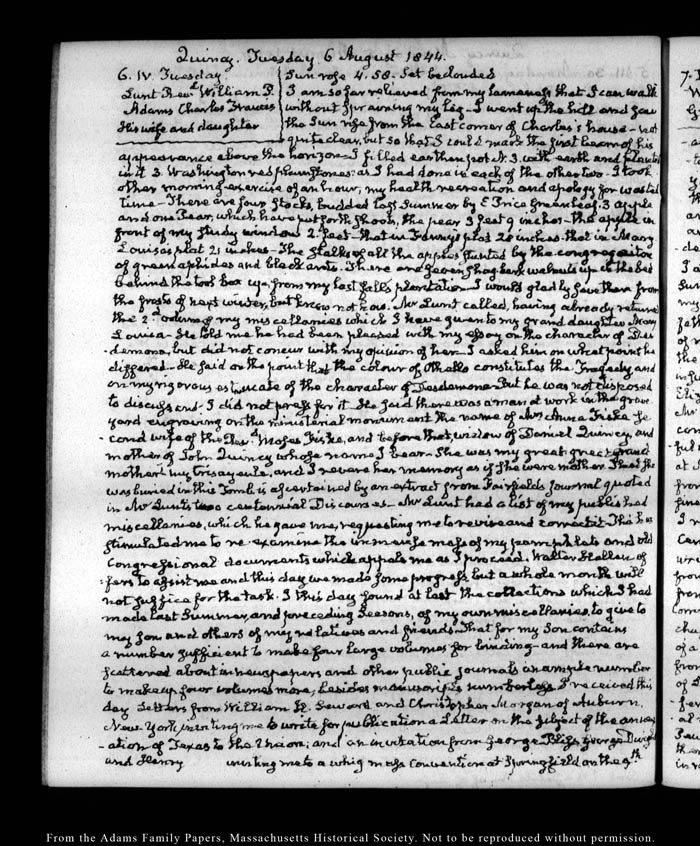 Quincy. Tuesday 6 August 1844.
6. IV. Tuesday.
Lunt Revd. William P.
Adams Charles Francis
His wife and daughter
Sun rose 4.58. Set beclouded
I am so far relieved from my lameness that I can walk
without spraining my leg — I went up the hill and saw
the Sun rise from the East corner of Charles's house — not
quite clear, but so that I could mark the first beam of his
appearance above the horizon — I filled earthen pot N. 3. with earth and planted
in it 3. Washington red plumstones: as I had done in each of the other two — I took
other morning exercise of an hour, my health recreation and apology for wasted
time — There are four Stocks, budded last Summer by E Price Greenleaf. 3 apple
and one Pear, which have put forth shoots, the pear 3 feet 9 inches — the apple in
front of my study window 2. feet — that in Fanny's plat 28 inches. that in Mary
Louisa's plat 21 inches — The stalks of all the apples stunted by the congregation
of green aphides and black ants. There are seven shagbark walnuts up in the bed
behind the tool box up, from my last fall's plantation — I would gladly save them from
the frosts of next winter, but know not how. Mr Lunt called, having already returned
the 2d. volume of my miscellanies which I have given to my grand daughter Mary
Louisa — He told me he had been pleased with my essay on the character of Des
demona, but did not concur with my opinion of her — I asked him on what point he
differed — He said on the point that the colour of Othello constitutes the Tragedy and
on my rigorous estimate of the character of Desdemona — But he was not disposed
to discuss and I did not press for it. He said there was a man at work in the grave
yard engraving on the ministerial monument the name of Mrs Anna Fiske se
cond wife of the Revd. Moses Fiske, and before that widow of Daniel Quincy, and
mother of John Quincy whose name I bear. She was my great great grand
mother my trisayeule, and I revere her memory as if she were mother. That she
was buried in this Tomb is ascertained by an extract from Fairfield's Journal quoted
in Mr Lunt's two centennial Discourses — Mr Lunt had a list of my published
miscellanies, which he gave me, requesting me to revise and correct it. This has
stimulated me to re-examine the immense mass of my pamphlets and old
Congressional documents which appals me as I proceed. Walter Hellen of
fers to assist me and this day we made some progress but a whole month will
not suffice for the task. I this day found at last the collections which I had
made last Summer, and preceding Seasons, of my own miscellanies, to give to
my Son and others of my relatives and friends — That for my Son contains
a number sufficient to make four large volumes for binding — and there are
scattered about in newspapers and other public journals an ample number
to make up four volumes more, besides manuscripts numberless. I received this
day Letters from William H. Seward and Christopher Morgan of Auburn,
New York inviting me to write for publication a Letter on the subject of the annex
ation of Texas to the Union, and an invitation from George Bliss, George Dwight
and Henry inviting me to a whig mass Convention at Springfield on the 9th.
From the Adams Family Papers, Massachusetts Historical Society. Not to be reproduced without permission.